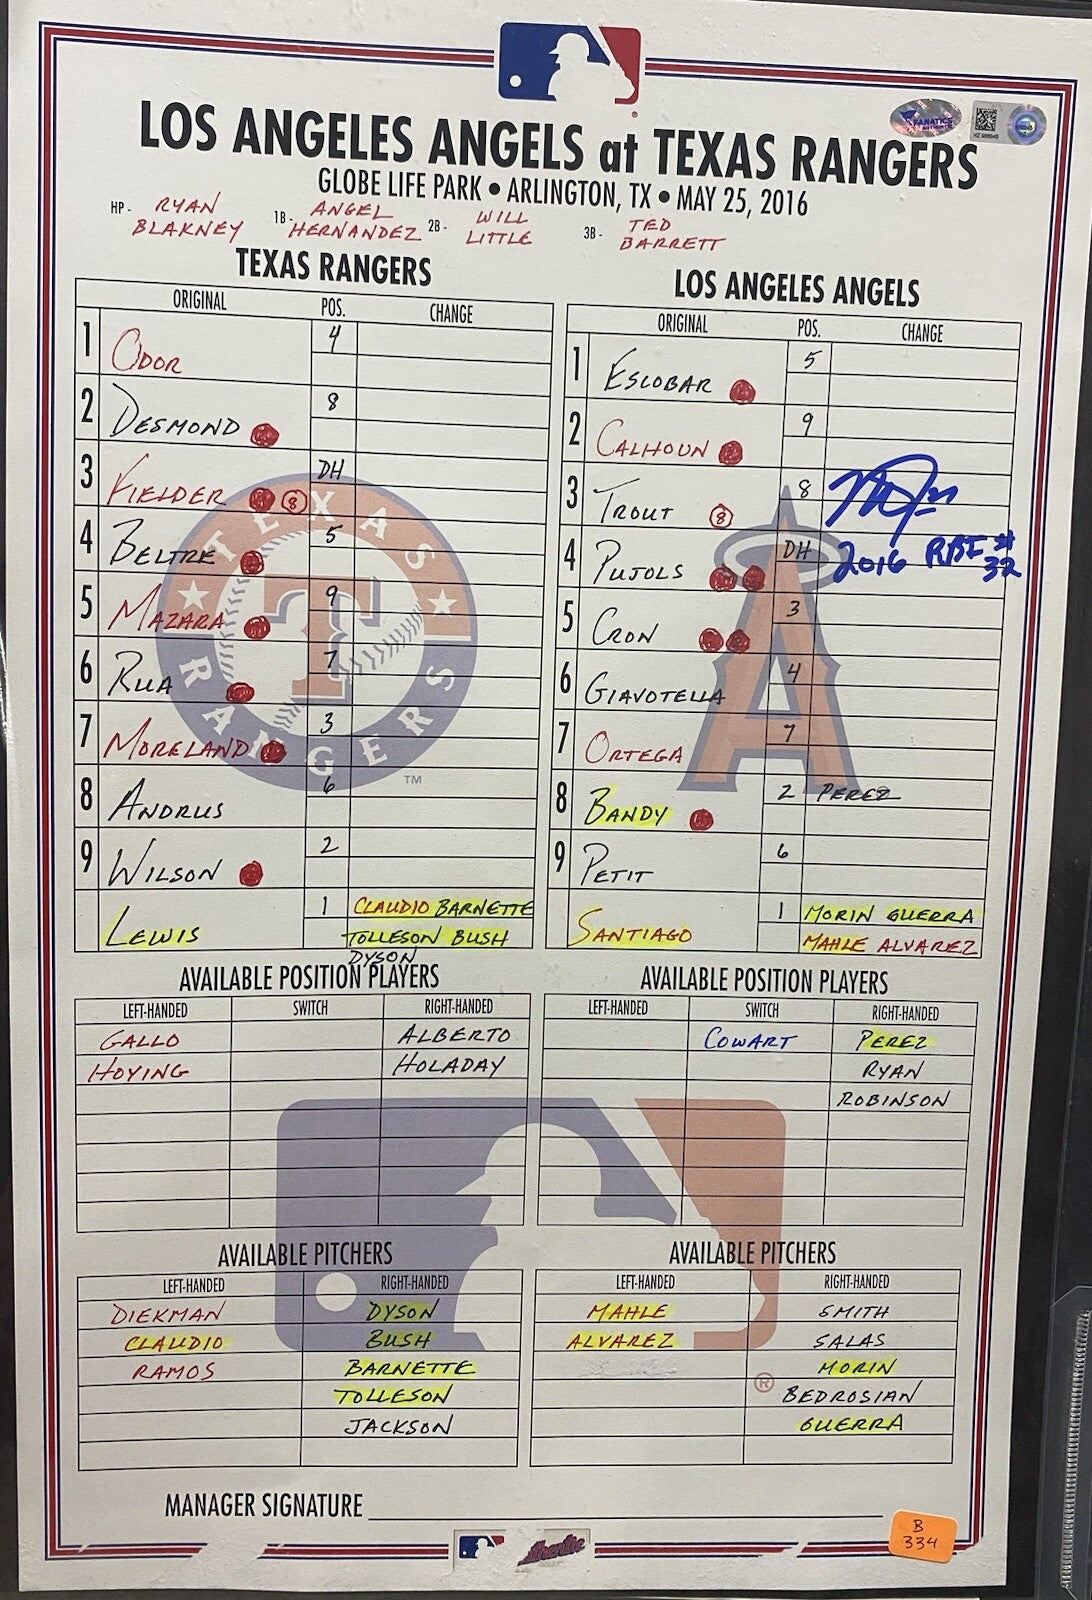 FANATICS
AUTHENTIC
LOS ANGELES ANGELS at TEXAS RANGERS
GLOBE LIFE PARK • ARLINGTON, TX • MAY 25, 2016
HP - RYAN BLAKNEY 1B - ANGEL HERNANDEZ 2B - WILL LITTLE 3B - TED BARRETT
TEXAS RANGERS
ORIGINAL POS. CHANGE
1 ODOR 4
2 DESMOND 8
3 FIELDER 8 DH
4 BELTRE 5
5 MAZARA 9
6 RUA 7
7 MORELAND 3
8 ANDRUS 6
9 WILSON 2
LEWIS 1 CLAUDIO BARNETTE
TOLLESON BUSH
DYSON
LOS ANGELES ANGELS
ORIGINAL POS. CHANGE
1 ESCOBAR 5
2 CALHOUN 9
3 TROUT 8 8
2016 RBI #
32
4 PUJOLS DH
5 CRON 3
6 GIAVOTELLA 4
7 ORTEGA 7
8 BANDY 2 PEREZ
9 PETIT 6
SANTIAGO 1 MORIN GUERRA
MAHLE ALVAREZ
TEXAS RANGERS
T
TM
A
AVAILABLE POSITION PLAYERS
LEFT-HANDED SWITCH RIGHT-HANDED
GALLO ALBERTO
HOYING HOLADAY
AVAILABLE POSITION PLAYERS
LEFT-HANDED SWITCH RIGHT-HANDED
COWART PEREZ
RYAN
ROBINSON
AVAILABLE PITCHERS
LEFT-HANDED RIGHT-HANDED
DIEKMAN DYSON
CLAUDIO BUSH
RAMOS BARNETTE
TOLLESON
JACKSON
AVAILABLE PITCHERS
LEFT-HANDED RIGHT-HANDED
MAHLE SMITH
ALVAREZ SALAS
MORIN
BEDROSIAN
GUERRA
®
MANAGER SIGNATURE
Authentic
B
334